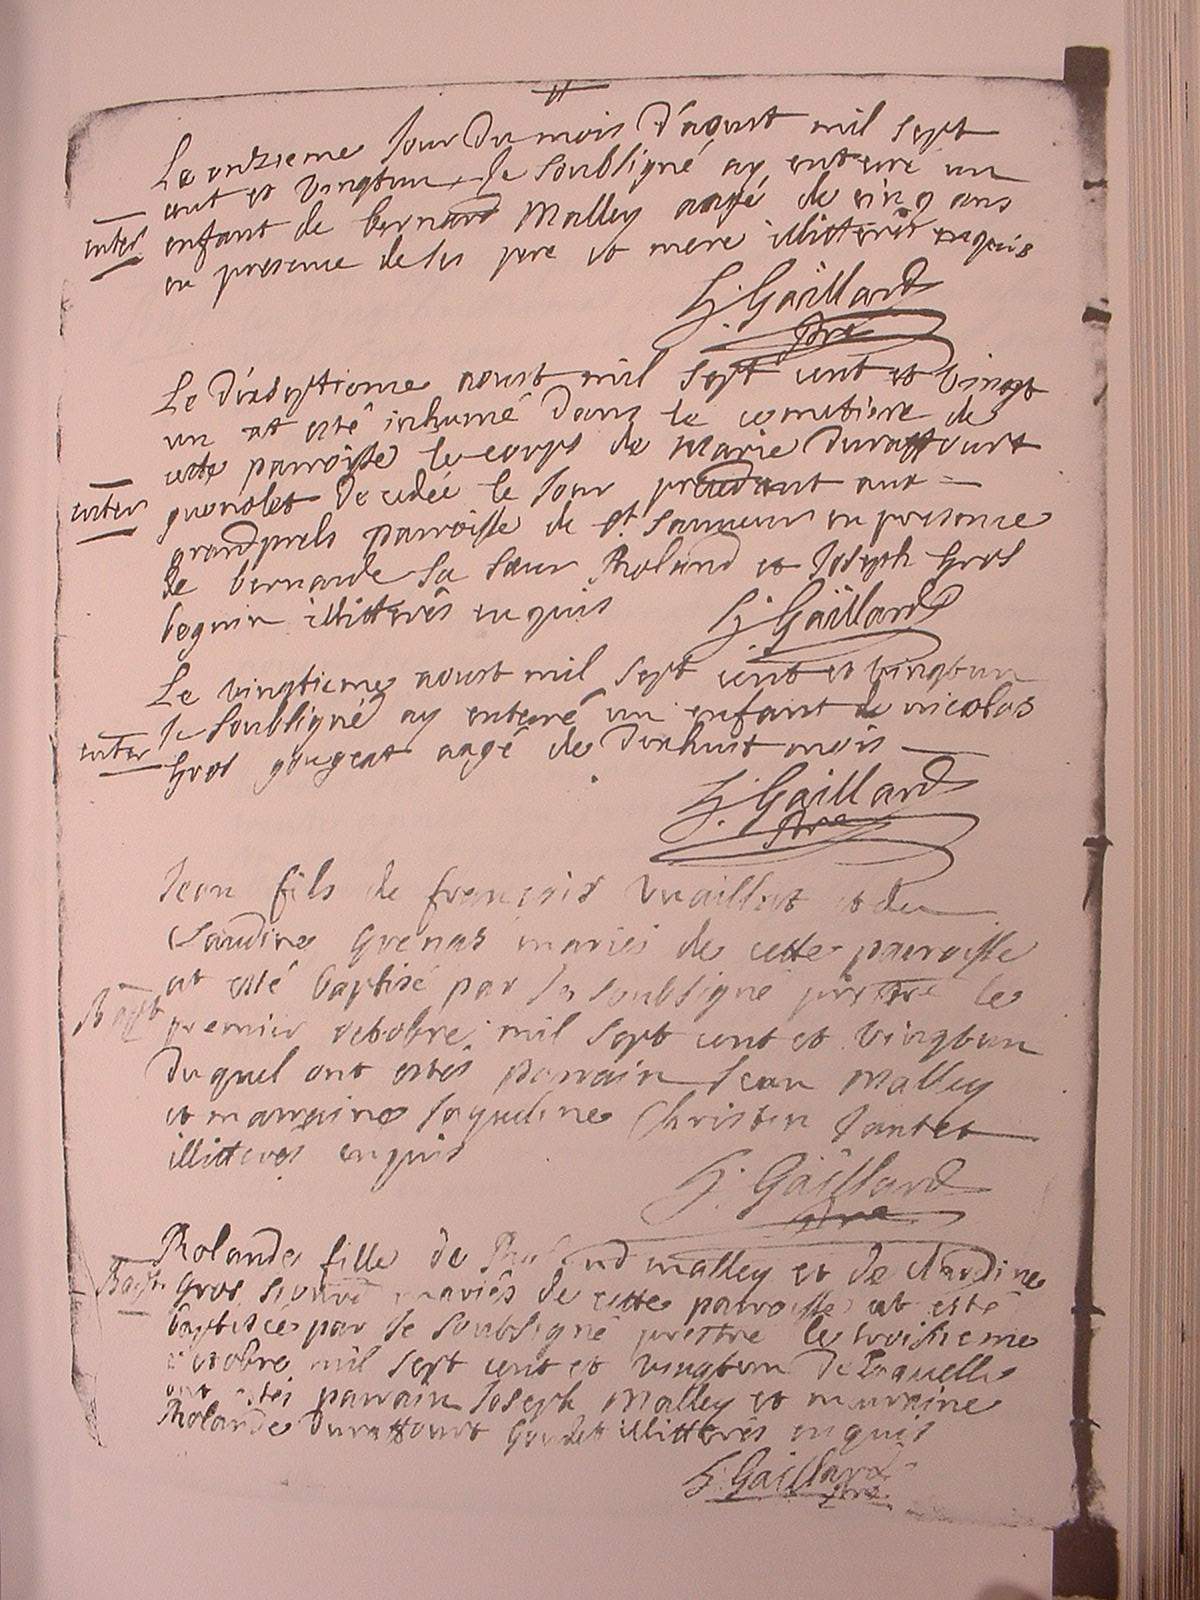 Le onzieme Jour du mois d'aoust mil sept
cent et vingtun Je soubsigné ay enterré un
enter enfant de bernard Malley aagé de cinq ans
en presence de ses pere et mere illitterés enquis
h. Gaillard
pre
Le dixseptieme aoust mil sept cent et vingt
un at esté inhumé dans le cemitiere de
cette parroisse le corps de Marie duraffourt
enter guenolet decedée le Jour precedant aux
grandprels parroisse de st Sauveur en presence
de bernarde sa soeur Roland et Joseph Gros
beguin illitterés enquis
h. Gaillard
Le vingtieme aoust mil sept cent et vingtun
Je soubsigné ay enterré un enfant de nicolas
enter Gros gougeat aagé de dixhuit mois
h. Gaillard
pre
Jean fils de françois Vuaillat et de
Claudine Grenas mariés de cette parroisse
at esté baptisé par Je soubsigné prestre le
Bapt premier octobre mil sept cent et vingtun
duquel ont estés parrain Jean Malley
et marraine Jaqueline Christin Jantet
illitterés enquis
h. Gaillard
pre
Rolande fille de Roland malley et de claudine
Bapt Gros mariés de cette parroisse at esté
baptisée par Je soubsigné prestre le troisieme
octobre mil sept cent et vingtun de laquelle
ont estés parrain Joseph Malley et marraine
Rolande duraffourt Goudet illitterés enquis
h. Gaillard
pre